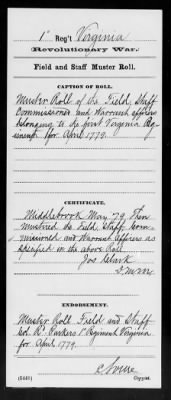 1st Reg't Virginia
Revolutionary War.
Field and Staff Muster Roll.
CAPTION OF ROLL.
Muster Roll of the Field, Staff
Commissioner and Warrant officers
belonging to the first Virginia Reg-
iment for April 1779.
CERTIFICATE.
Middlebrook May '79. Then
mustered the Field, Staff Com-
missioned and Warrant Officers as
specified in the above Roll
Jos Clark
ENDORSEMENT.
Muster Roll Field and Staff
Col. R. Parkers 1st Regiment Virginia
for April 1779.
Copyist.